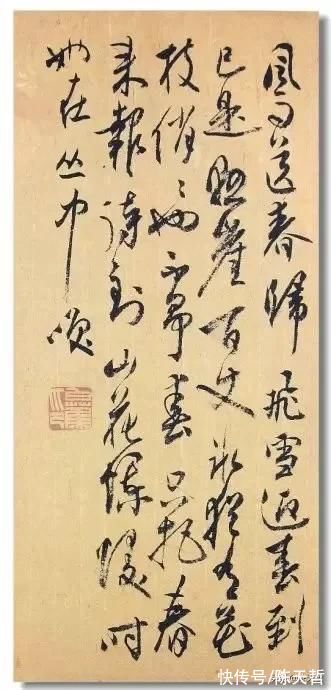 風雨送春歸飛雪迎春到
已是懸崖百丈冰猶有花
枝俏〻也不爭春只把春
来報待到山花爛漫时
她在丛中咲
快传号/陈天哲